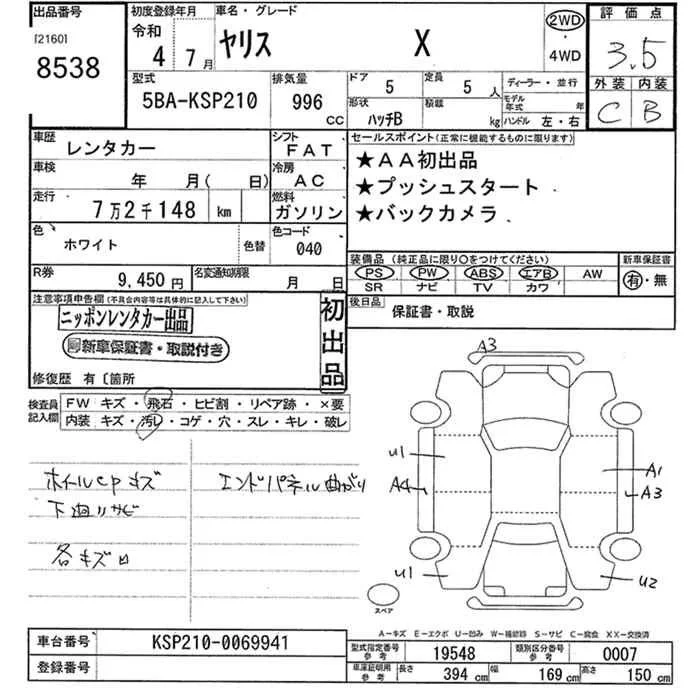 出品番号
[2160]
8538
初度登録年月
令和
4 7月
車名・グレード
ヤリス X
2WD
・
4WD
評価点
3.5
外装 内装
C B
型式
5BA-KSP210
排気量
996
CC
ドア 5
形状 ハッチB
定員 5人
積載 kg
ディーラー・並行
モデル年式 年
ハンドル 左・右
車歴
レンタカー
シフト
FAT
車検
年 月( 日)
冷房
AC
走行
7万2千148 km
燃料
ガソリン
色
ホワイト
色替
色コード
040
R券
9,450円
名変通知期限
月 日
セールスポイント(正常に機能するものに限ります)
★AA初出品
★プッシュスタート
★バックカメラ
装備品 (純正品に限り○をつけてください)
PS PW ABS エアB AW
SR ナビ TV カワ
新車保証書
有・無
後日品
保証書・取説
注意事項申告欄(不具合内容等は具体的に記入して下さい)
ニッポンレンタカー出品
新車保証書・取説付き
初出品
修復歴 有〔箇所
検査員記入欄
FW キズ・飛石・ヒビ割・リペア跡・×要
内装 キズ・汚レ・コゲ・穴・スレ・キレ・破レ
ホイルcpキズ
下廻りサビ
各キズ凹
エンドパネル曲がり
A3
U1
A4
A1
A3
U1
U2
スペア
A-キズ E-エクボ U-凹み W-補修跡 S-サビ C-腐食 XX-交換済
車台番号
KSP210-0069941
登録番号
型式指定番号
参考
19548
類別区分番号
参考
0007
車庫証明用
参考
長さ 394 cm
幅 169 cm
高さ 150 cm